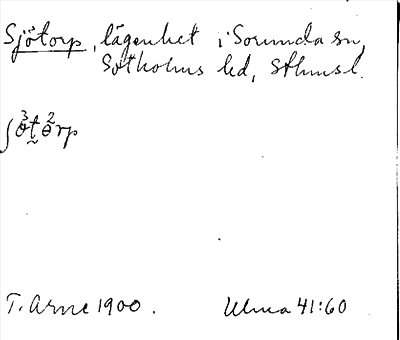 Sjötorp, lägenhet i Sorunda sn,
Sotholms hd, Sthmsl.
ʃɵ³t̰ɵ²rp
T. Arne 1900. Ulma 41:60